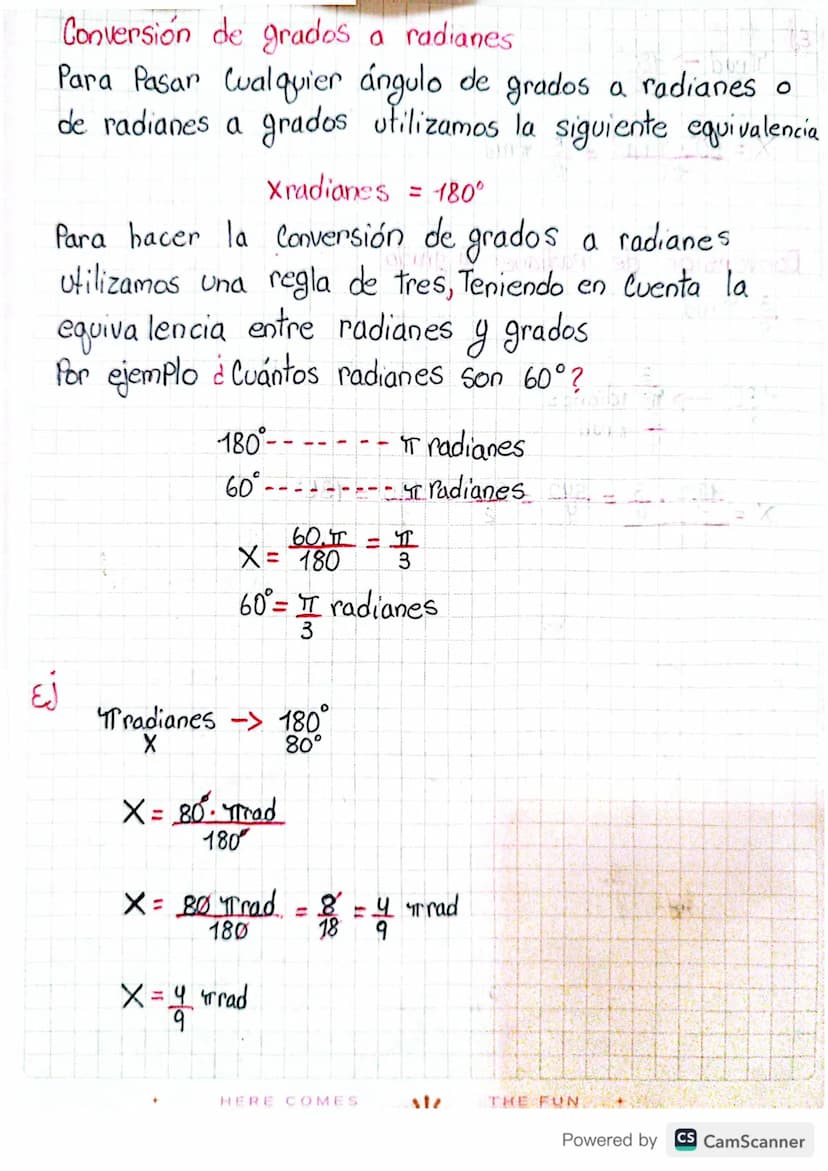 Conversión de grados a radianes
Para Pasar Cualquier ángulo de grados a radianes o
de radianes a grados utilizamos la siguiente equivalencia
X radianes = 180°
Para hacer la Conversión de grados a radianes
utilizamos una regla de tres, Teniendo en Cuenta la
equivalencia entre radianes y grados
Por ejemplo ¿Cuántos radianes son 60°?
180°------- π radianes
60°--------- π radianes
X = 60.π/180 = π/3
60° = π/3 radianes
Ej
π radianes -> 180°
X 80°
X = 80°. π rad/180°
X = 80 π rad/180 = 8/18 = 4/9 π rad
X = 4/9 π rad
HERE COMES THE FUN
Powered by CS CamScanner